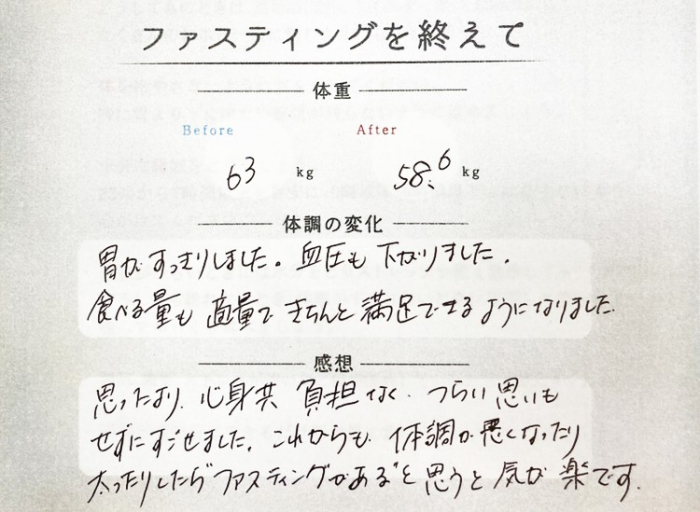 ファスティングを終えて
体重
Before After
63 kg 58.6 kg
体調の変化
胃がすっきりしました。血圧も下がりました。
食べる量も適量できちんと満足できるようになりました。
感想
思ったより、心身共負担なく、つらい思いも
せずにすごせました。これからも、体調が悪くなったり
太ったりしたら"ファスティングがある"と思うと気が楽です。